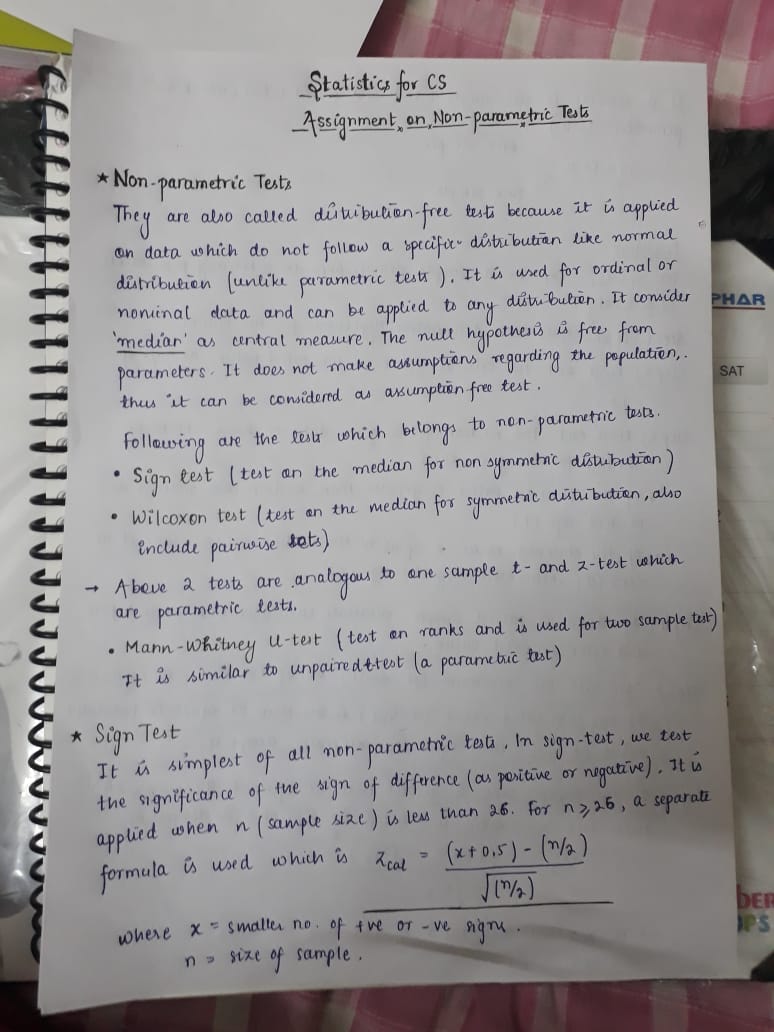 Statistics for CS
Assignment on Non-parametric Tests
* Non-parametric Tests
They are also called distribution-free tests because it is applied
on data which do not follow a specific distribution like normal
distribution (unlike parametric tests). It is used for ordinal or
nominal data and can be applied to any distribution. It consider
'median' as central measure. The null hypothesis is free from
parameters. It does not make assumptions regarding the population,.
thus it can be considered as assumption free test.
Following are the tests which belongs to non-parametric tests.
• Sign test (test on the median for non symmetric distribution)
• Wilcoxon test (test on the median for symmetric distribution, also
include pairwise sets)
→ Above 2 tests are analogous to one sample t- and z-test which
are parametric tests.
• Mann-Whitney U-test (test on ranks and is used for two sample test)
It is similar to unpaired t test (a parametric test)
* Sign Test
It is simplest of all non-parametric tests. In sign-test, we test
the significance of the sign of difference (as positive or negative). It is
applied when n (sample size) is less than 26. For n ≥ 26, a separate
formula is used which is Zcal = (x+0.5) - (n/2) / √(n/2)
where x = smaller no. of +ve or -ve signs.
n = size of sample.
PHAR
SAT
BER
OPS